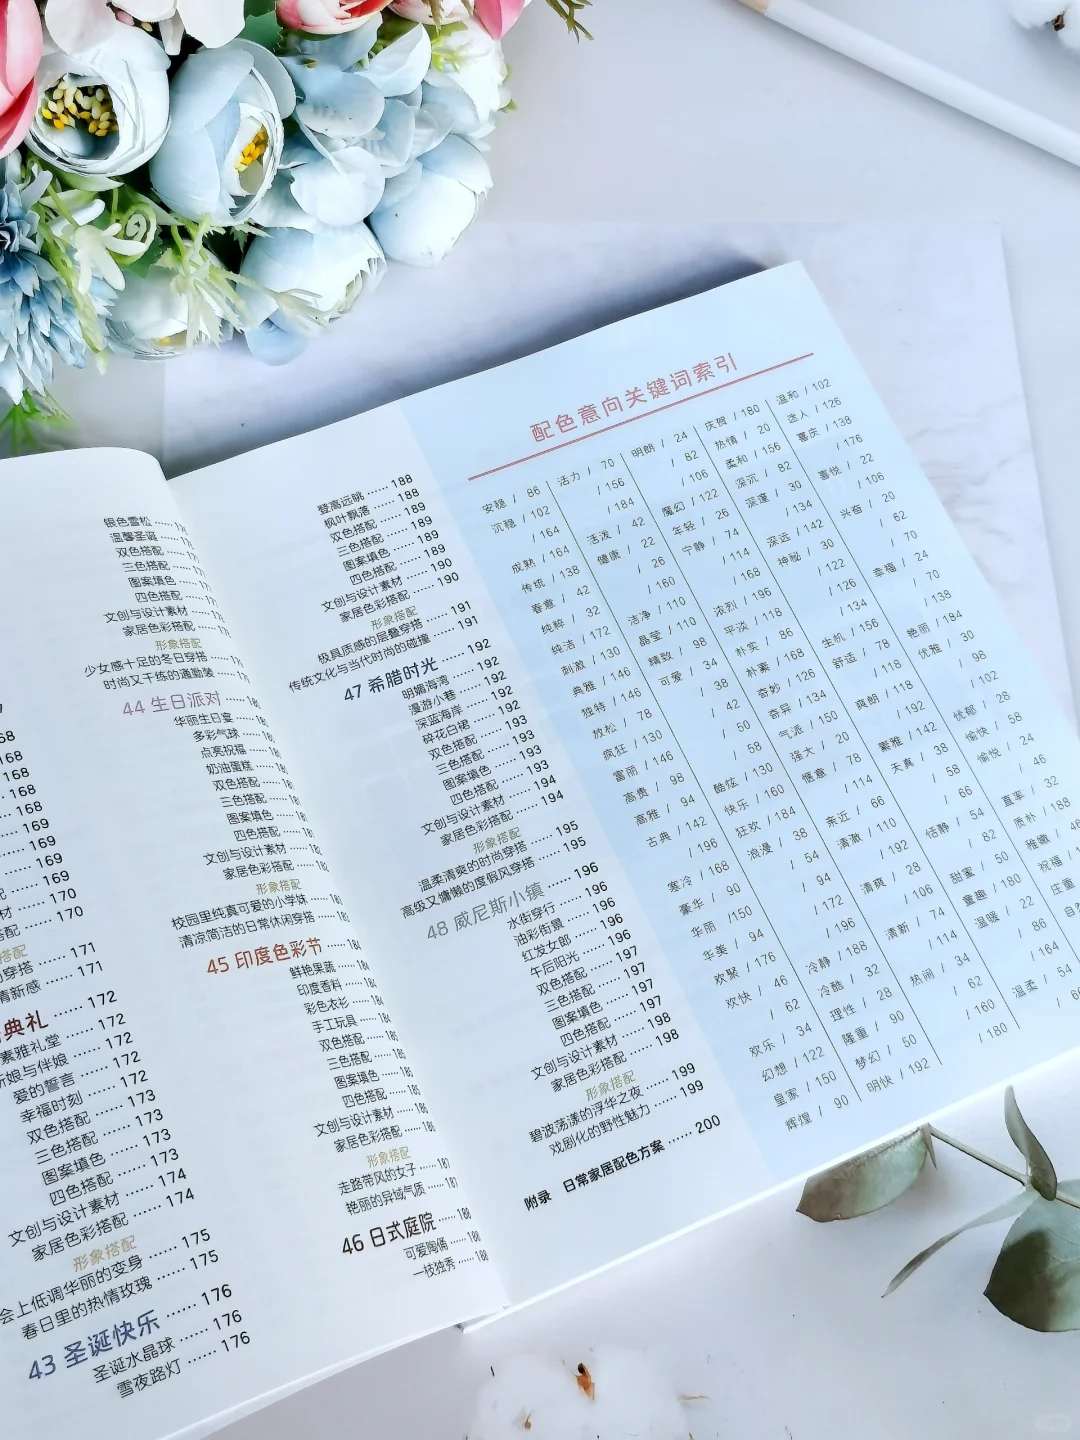 68
168
168
168
168
169
169
169
169
170
搭配 170
搭配
穿搭 171
清新感 171
典礼 172
素雅礼堂 172
新娘与伴娘 172
爱的誓言 172
幸福时刻 172
双色搭配 173
三色搭配 173
图案填色 173
四色搭配 173
文创与设计素材 174
家居色彩搭配 174
形象搭配
会上低调华丽的变身 175
春日里的热情玫瑰 175
43 圣诞快乐 176
圣诞水晶球 176
雪夜路灯 176
银色雪松
温馨圣诞
双色搭配
三色搭配
图案填色
四色搭配
文创与设计素材
家居色彩搭配
形象搭配
少女感十足的冬日穿搭
时尚又干练的通勤装
44 生日派对
华丽生日宴
多彩气球
点亮祝福
奶油蛋糕
双色搭配
三色搭配
图案填色
四色搭配
文创与设计素材
家居色彩搭配
形象搭配
校园里纯真可爱的小学妹
清凉简洁的日常休闲穿搭
45 印度色彩节 184
鲜艳果蔬 184
印度香料 184
彩色衣衫 184
手工玩具 184
双色搭配 185
三色搭配 185
图案填色 185
四色搭配 185
文创与设计素材 186
家居色彩搭配 186
形象搭配
走路带风的女子 187
艳丽的异域气质 187
46 日式庭院 188
可爱陶俑 188
一枝独秀 188
登高远眺 188
枫叶飘落 188
双色搭配 189
三色搭配 189
图案填色 189
四色搭配 189
文创与设计素材 190
家居色彩搭配 190
形象搭配
极具质感的层叠穿搭 191
传统文化与当代时尚的碰撞 191
47 希腊时光 192
明媚海湾 192
漫游小巷 192
深蓝海岸 192
碎花白裙 192
双色搭配 193
三色搭配 193
图案填色 193
四色搭配 193
文创与设计素材 194
家居色彩搭配 194
形象搭配
温柔清爽的时尚穿搭 195
高级又慵懒的度假风穿搭 195
48 威尼斯小镇 196
水街穿行 196
油彩街景 196
红发女郎 196
午后阳光 196
双色搭配 197
三色搭配 197
图案填色 197
四色搭配 197
文创与设计素材 198
家居色彩搭配 198
形象搭配
碧波荡漾的浮华之夜 199
戏剧化的野性魅力 199
附录 日常家居配色方案 200
配色意向关键词索引
安稳 / 86
沉稳 / 102
/ 164
成熟 / 164
传统 / 138
春意 / 42
纯粹 / 32
纯洁 / 172
刺激 / 130
典雅 / 146
独特 / 146
放松 / 78
疯狂 / 130
富丽 / 146
高贵 / 98
高雅 / 94
古典 / 142
/ 196
寒冷 / 168
豪华 / 90
华丽 /150
华美 / 94
欢聚 / 176
欢快 / 46
/ 62
欢乐 / 34
幻想 / 122
皇家 / 150
辉煌 / 90
活力 / 70
/ 156
/ 184
活泼 / 42
健康 / 22
/ 26
/ 160
洁净 / 110
晶莹 / 110
精致 / 98
可爱 / 34
/ 38
/ 42
/ 50
/ 58
酷炫 / 130
快乐 / 160
狂欢 / 184
浪漫 / 38
/ 54
/ 94
/ 172
/ 196
冷静 / 188
冷酷 / 32
理性 / 28
隆重 / 90
梦幻 / 50
明快 / 192
明朗 / 24
/ 82
/ 106
魔幻 / 122
年轻 / 26
宁静 / 74
/ 114
/ 168
浓烈 / 196
平淡 / 118
朴实 / 86
朴素 / 168
奇妙 / 126
奇异 / 134
气派 / 150
强大 / 20
惬意 / 78
/ 114
亲近 / 66
清澈 / 110
/ 192
清爽 / 28
/ 106
清新 / 74
/ 114
热闹 / 34
/ 62
/ 160
/ 180
庆贺 / 180
热情 / 20
柔和 / 156
深沉 / 82
深邃 / 30
/ 134
深远 / 142
神秘 / 30
/ 122
/ 126
/ 134
生机 / 156
舒适 / 78
/ 118
爽朗 / 118
/ 192
素雅 / 142
天真 / 38
/ 58
/ 66
恬静 / 54
/ 82
甜蜜 / 50
童趣 / 180
温暖 / 22
/ 86
/ 164
温柔 / 54
/ 66
温和 / 102
迷人 / 126
喜庆 / 138
/ 176
喜悦 / 22
/ 106
兴奋 / 20
/ 62
/ 70
幸福 / 24
/ 70
/ 138
艳丽 / 184
优雅 / 30
/ 98
/ 102
忧郁 / 28
愉快 / 58
愉悦 / 24
/ 46
直率 / 32
质朴 / 188
稚嫩 / 46
祝福
庄重
自然